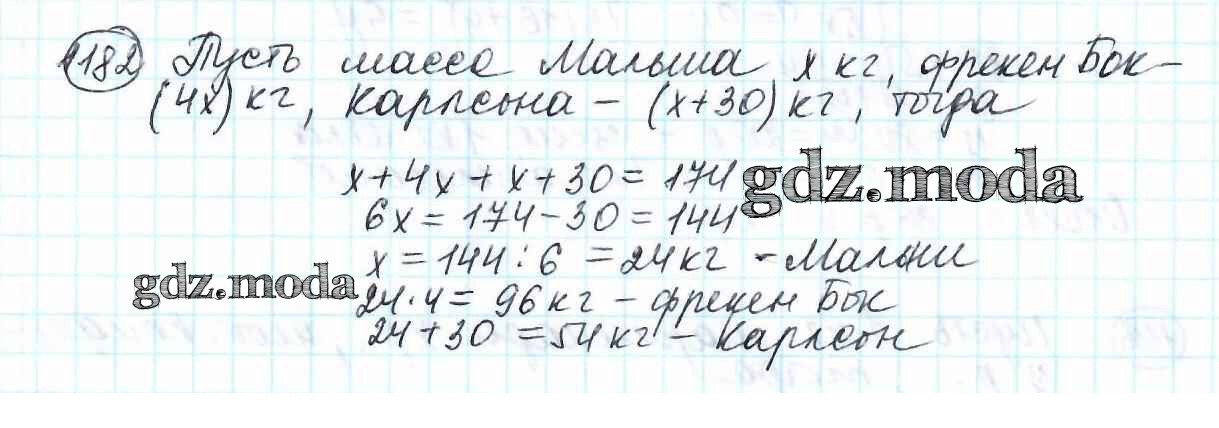 182 Пусть масса Малыша x кг, фрекен Бок –
(4x) кг, Карлсона – (x+30) кг, тогда
x+4x+x+30=174 gdz.moda
6x=174-30=144
x=144:6=24кг - Малыш
gdz.moda 24·4=96кг - фрекен Бок
24+30=54кг - Карлсон